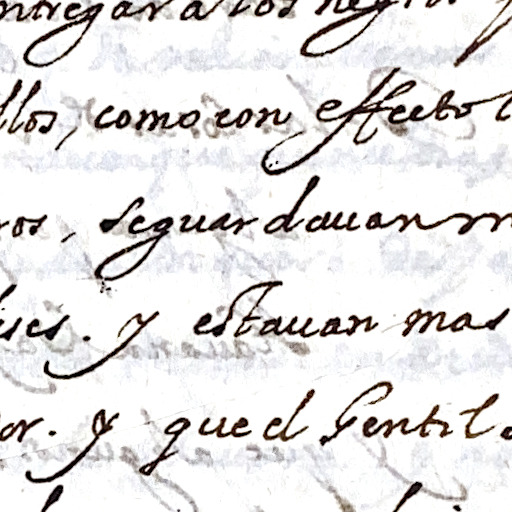 ntregar a los negro
llos, como con effecto l
ros, seguardauan m
ses. y estauan mas
or. y que el Gentil